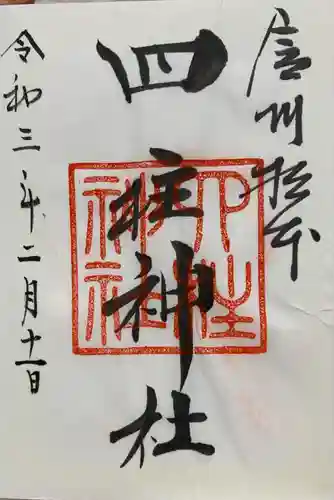 信州松本
四柱神社
四柱神社
令和三年二月十一日